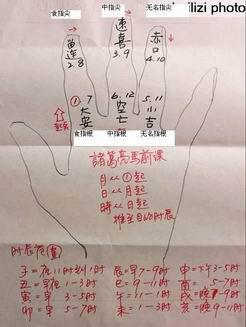 lizi photo
食指尖 中指尖 无名指尖
留连 2.8
速喜 3.9
赤口 4.10
①.7 大安
6.12 空亡
5.11 小吉
食指根 中指根 无名指根
諸葛亮馬前课
月从①起
日从月起
時从日起
推至目的时辰
子=夜11时到1时
丑=早夜1-3时
寅=早3-5时
卯=早5-7时
辰=早7-9时
巳=9-11时
午=11-1时
未=1-3时
申=下午3-5时
酉=5-7时
戌=晚7-9时
亥=晚9-11时